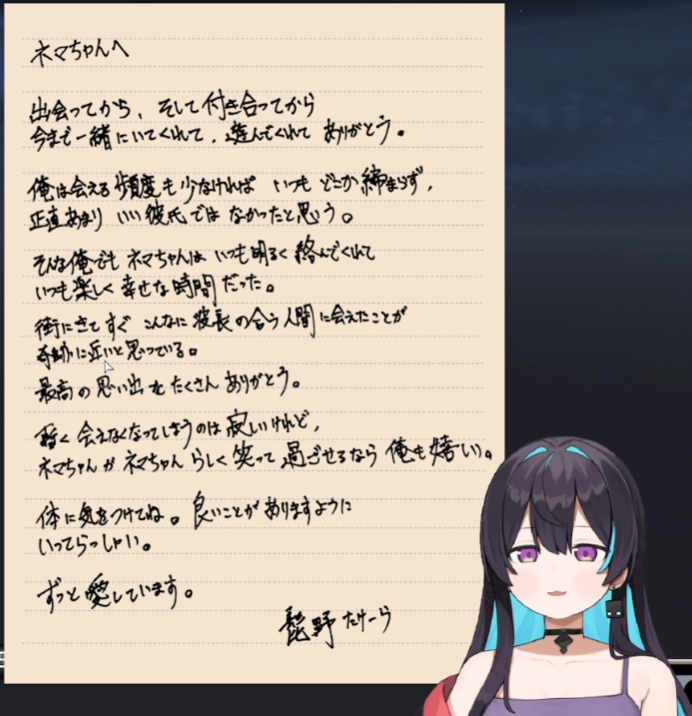 ネマちゃんへ
出会ってから、そして付き合ってから
今まで一緒にいてくれて、遊んでくれて ありがとう。
俺は会える頻度も少なければ いつも どこか締まらず、
正直あまり いい彼氏では なかったと思う。
そんな俺でも ネマちゃんは いつも明るく 絡んでくれて
いつも楽しく 幸せな時間 だった。
街にきて すぐ こんなに 波長の合う人間に会えたことが
奇跡に近いと思っている。
最高の思い出を たくさん ありがとう。
暫く 会えなくなってしまうのは 寂しいけれど、
ネマちゃんが ネマちゃん らしく 笑って 過ごせるなら 俺も嬉しい。
体に気をつけてね。良いことが ありますように
いってらっしゃい。
ずっと 愛しています。
髭野 たけーら